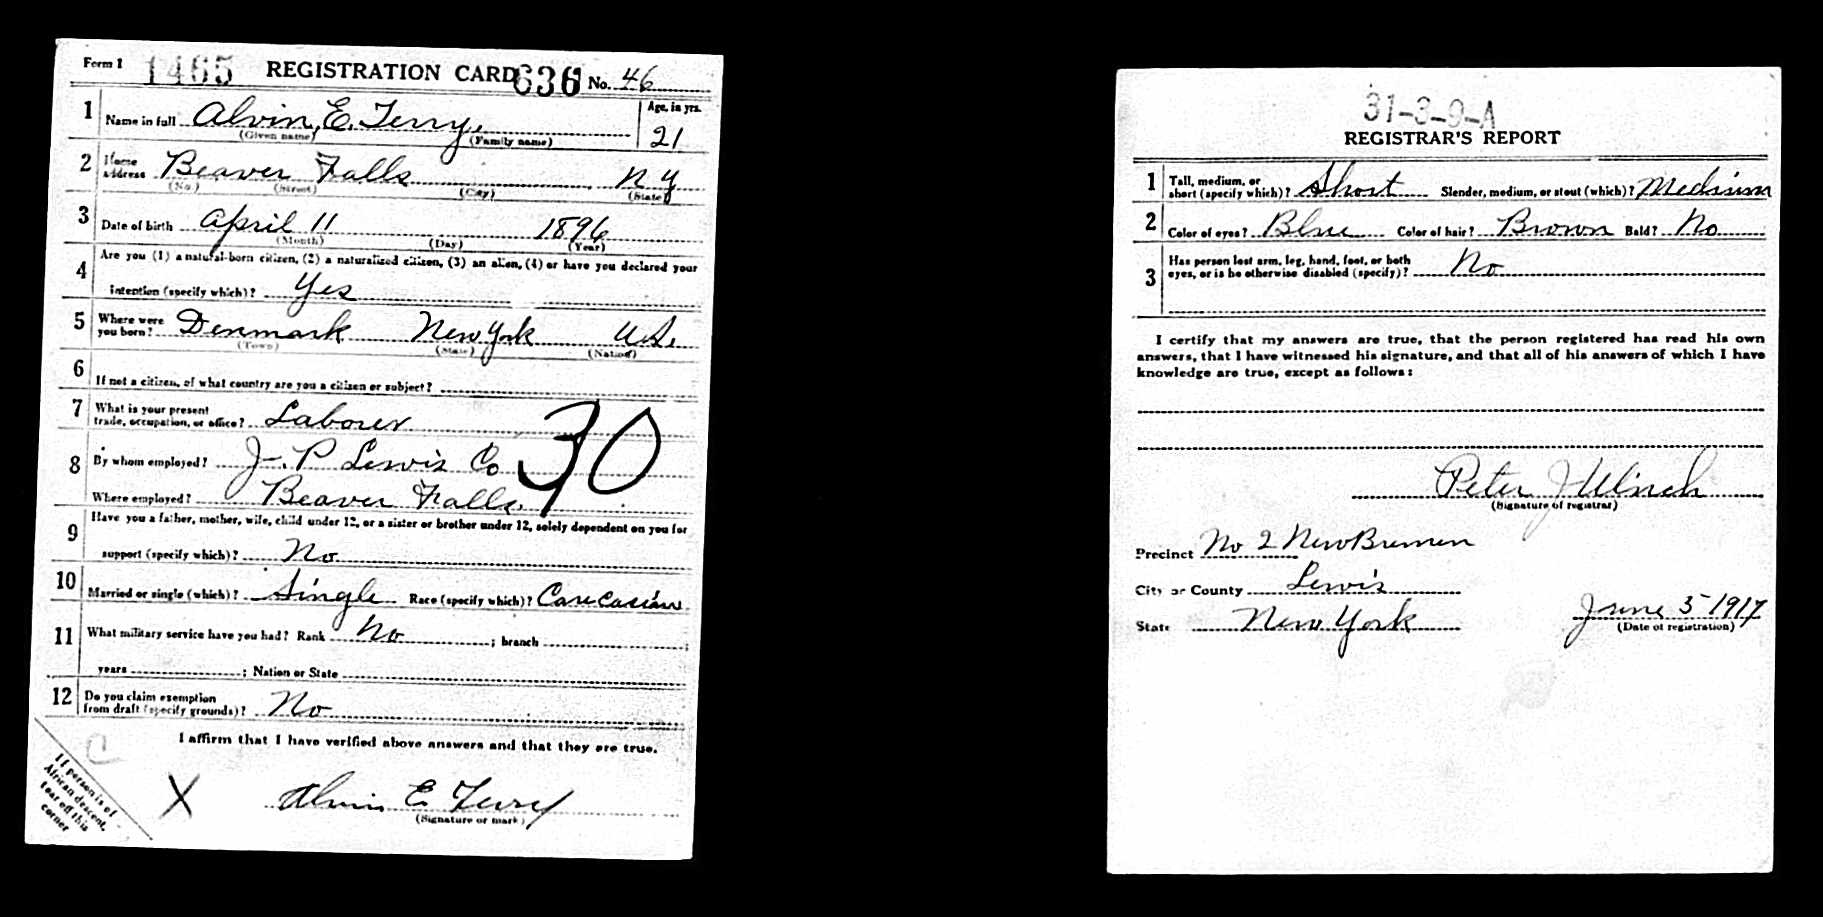 Form 1 1465 REGISTRATION CARD 636 No. 46
1 Name in full Alvin, E. Terry, Age, in yrs.
(Given name) (Family name) 21
2 Home address Beaver Falls N Y
(No.) (Street) (City) (State)
3 Date of birth April 11 1896
(Month) (Day) (Year)
4 Are you (1) a natural-born citizen, (2) a naturalized citizen, (3) an alien, (4) or have you declared your
intention (specify which)? Yes
5 Where were you born? Denmark New York U.S.
(Town) (State) (Nation)
6 If not a citizen, of what country are you a citizen or subject?
7 What is your present
trade, occupation, or office? Laborer
30
8 By whom employed? J. P Lewis Co
Where employed? Beaver Falls.
9 Have you a father, mother, wife, child under 12, or a sister or brother under 12, solely dependent on you for
support (specify which)? No
10 Married or single (which)? Single Race (specify which)? Caucasian
11 What military service have you had? Rank No ; branch ;
years ; Nation or State
12 Do you claim exemption
from draft (specify grounds)? No
I affirm that I have verified above answers and that they are true.
C
X
Alvin E Terry
(Signature or mark)
If person is of
African descent,
tear off this
corner
31-3-9-A
REGISTRAR'S REPORT
1 Tall, medium, or
short (specify which)? Short Slender, medium, or stout (which)? Medium
2 Color of eyes? Blue Color of hair? Brown Bald? No
3 Has person lost arm, leg, hand, foot, or both
eyes, or is he otherwise disabled (specify)? No
I certify that my answers are true, that the person registered has read his own
answers, that I have witnessed his signature, and that all of his answers of which I have
knowledge are true, except as follows:
Peter J Ulrich
(Signature of registrar)
Precinct No 2 New Bremen
City or County Lewis
State New York June 5 1917
(Date of registration)